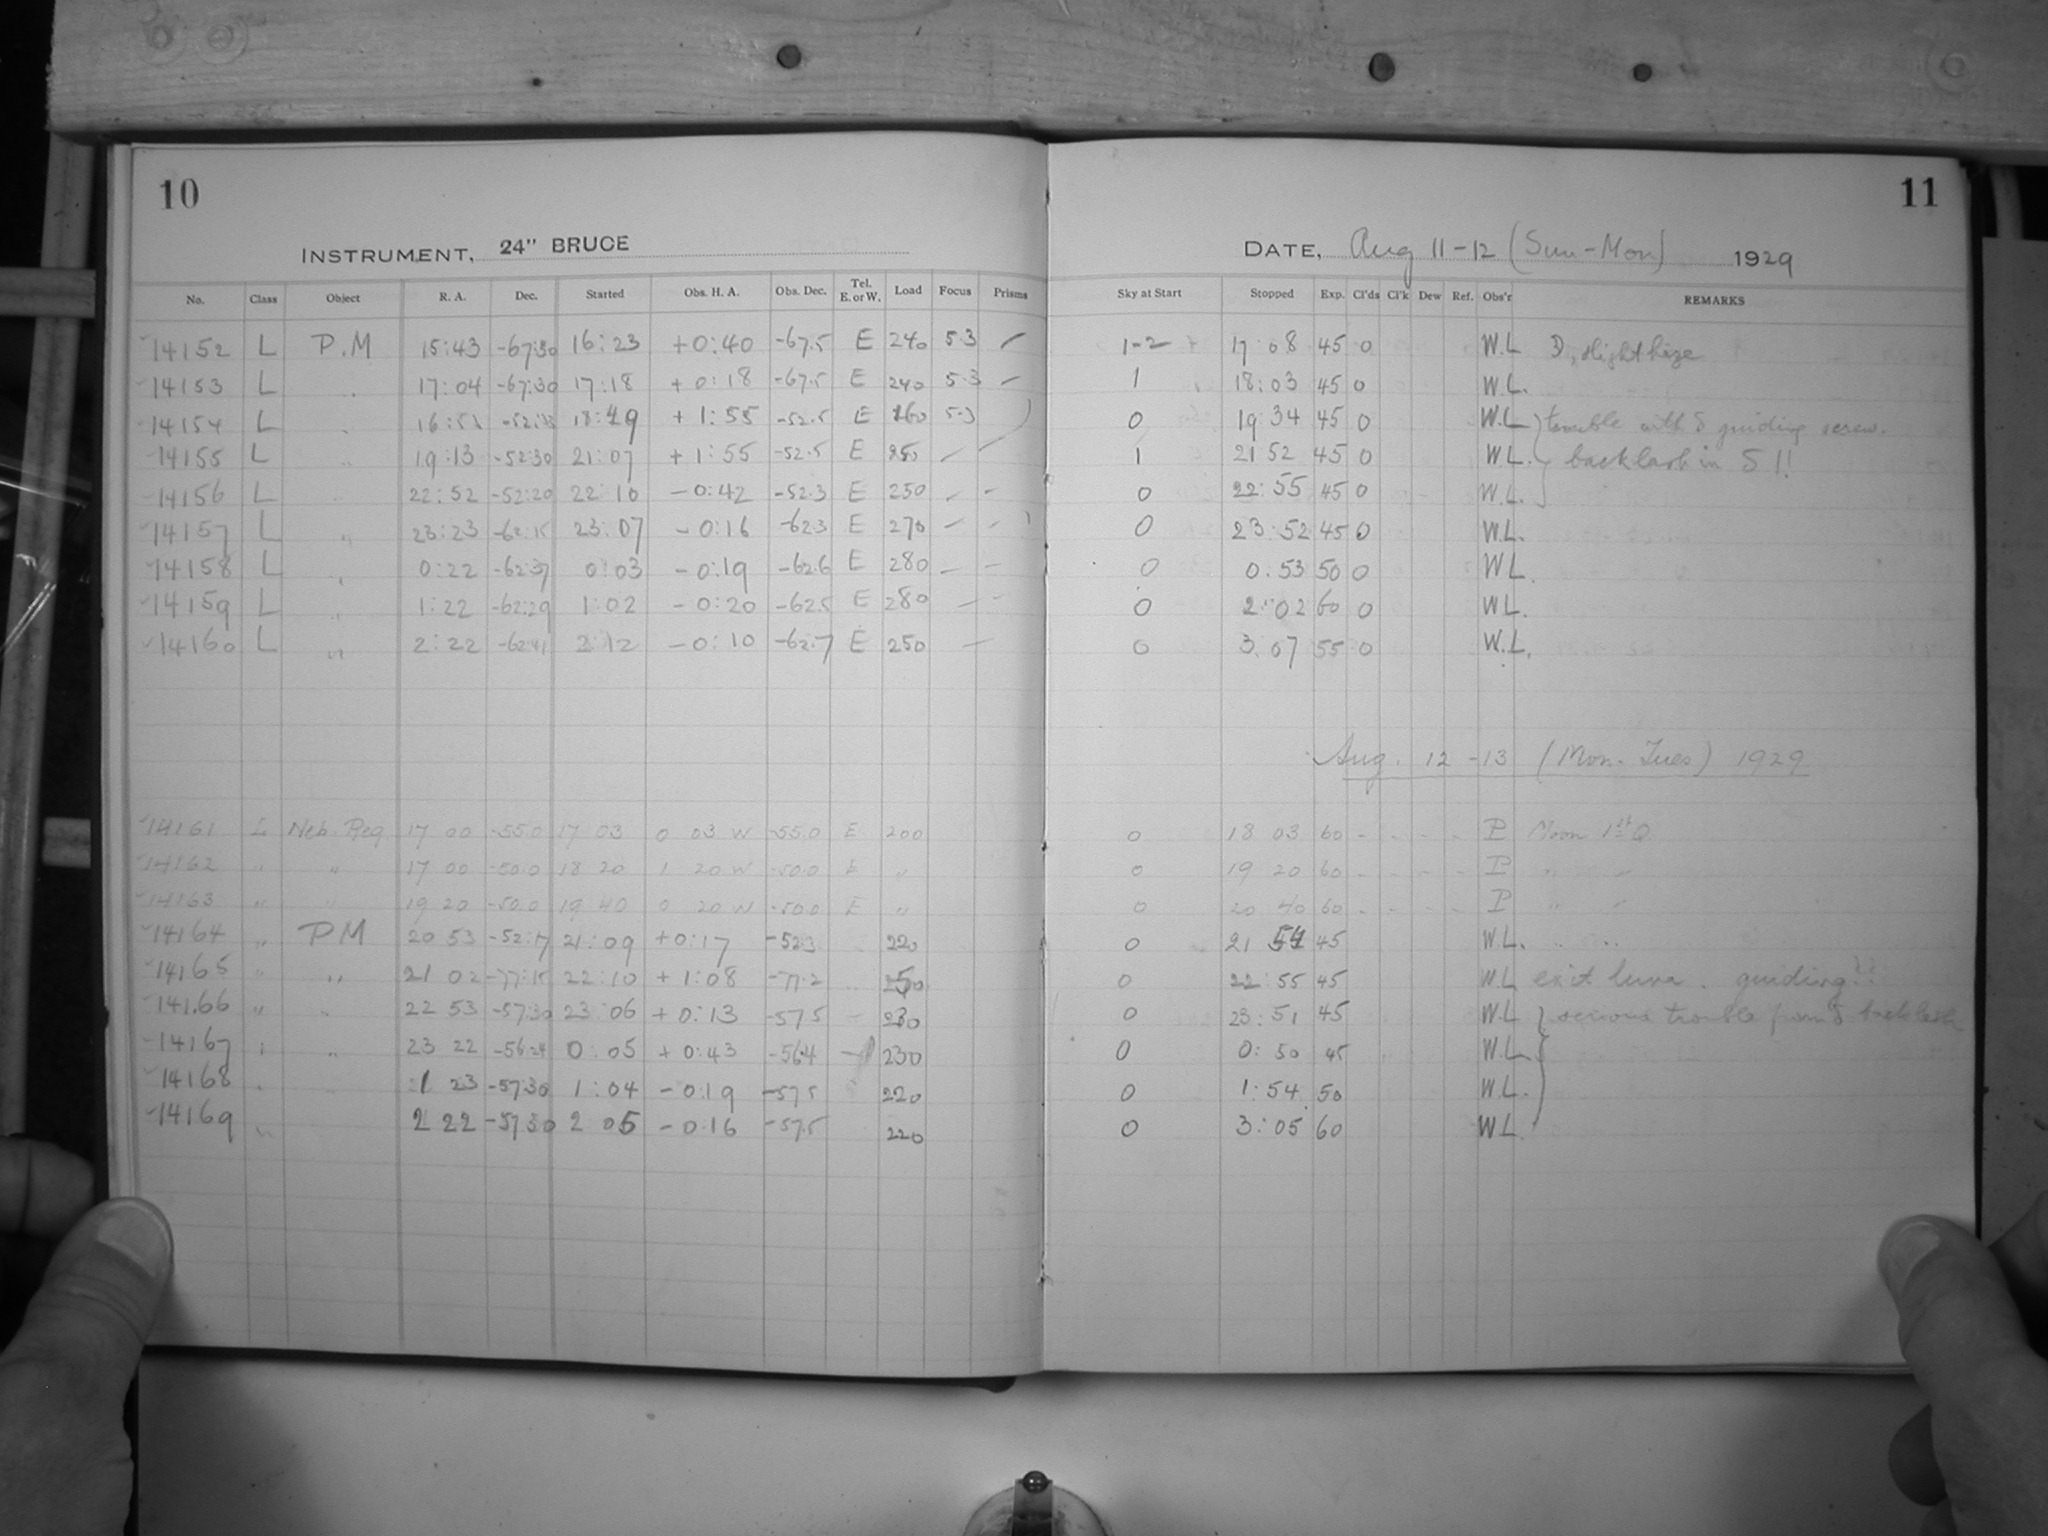 10
INSTRUMENT, 24" BRUCE
No. Class Object R. A. Dec. Started Obs. H. A. Obs. Dec. Tel. E. or W. Load Focus Prisms
14152 L P.M 15:43 -67:30 16:23 +0:40 -67.5 E 240 5.3
14153 L 17:04 -67:30 17:18 +0:18 -67.5 E 240 5.3
14154 L +1:55 -52.5 E 160 5.3
14155 L " 19:13 -52:30 21:07 +1:55 -52.5 E 250
14156 L " 22:52 -52:20 22:10 -0:42 -52.3 E 250
14157 L " 23:23 -62:15 23:07 -0:16 -62.3 E 270
14158 L " 0:22 -62:37 0:03 -0:19 -62.6 E 280
14159 L " 1:22 -62:29 1:02 -0:20 -62.5 E 280
14160 L " 2:22 -62:41 2:12 -0:10 -62.7 E 250
14161 L Neb. Reg 17 00 -55.0 17 03 0 03 W -55.0 E 200
14162 " " 17 00 -50.0 18 20 1 20 W -50.0 E "
14163 " " 19 20 -50.0 19 40 0 20 W -50.0 E "
14164 " PM 20 53 -52:17 21:09 +0:17 -52.3 220
14165 " " 21 02 -77:15 22:10 +1:08 -77.2
14166 " " 22 53 -57:30 23:06 +0:13 -57.5 230
14167 " " 23 22 -56:24 0:05 +0:43 -56.4 230
14168 1 23 -57:30 1:04 -0:19 -57.5 220
14169 " 2 22 -57:30 2 05 -0:16 -57.5 220
11
DATE, Aug 11-12 (Sun-Mon) 1929
Sky at Start Stopped Exp. Cl'ds Cl'k Dew Ref. Obs'r REMARKS
1-2 17:08 45 0 W.L slight haze
1 18:03 45 0 W.L.
0 19:34 45 0 W.L trouble with δ guiding screw.
1 21 52 45 0 W L. backlash in δ !!
0 22:55 45 0 W.L.
0 23:52 45 0 W.L.
0 0:53 50 0 W L.
0 2:02 60 0 W L.
0 3:07 55 0 W.L.
Aug. 12-13 (Mon-Tues) 1929
0 18 03 60 - - - - P Moon 1st Q
0 19 20 60 - - - - P " "
0 20 40 60 - - - - P " "
0 21 54 45 W L. " "
0 22:55 45 W L exit luna. guiding!!
0 23:51 45 W L serious trouble from δ backlash
0 0:50 45 W L.
0 1:54 50 W L.
0 3:05 60 W L.